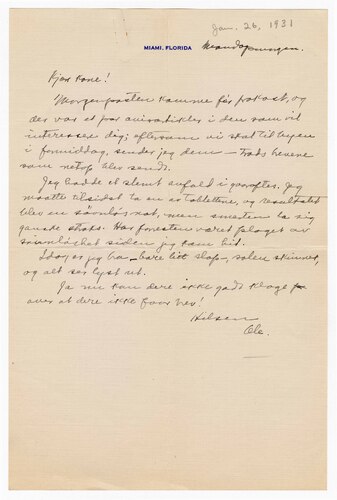 Jan. 26, 1931
MIAMI, FLORIDA
Mandagmorgen.
Kjære kone!
Morgenposten kommer før frokost, og
der var et par avisartikler i den som vil
interessere dig; eftersom vi skal til byen
i formiddag, sender jeg dem — trods brevene
som netop blev sendt.
Jeg hadde et slemt anfald i gaaraftes. Jeg
maatte tilsidst ta en av tablettene, og resultatet
blev en søvnløs nat, men smerten la sig
ganske straks. Har foresten været plaget av
søvnløshet siden jeg kom hit.
Idag er jeg bra — bare litt sløf — solen skinner,
og alt ser lyst ut.
Ja nu kan dere ikke godt klage
over at dere ikke faar brev!
Hilsen
Ole.